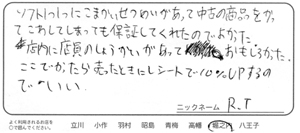 ソフト1つ1つにこまかいせつめいがあって中古の商品をかっ
てこわしてしまっても保証してくれたのでよかった
店内に店員のしょうかいがあって おもしろかった。
ここでかったら売ったときにレシートで10%UPするの
でいい。
ニックネーム R.T
よく利用されるお店を○で囲んでください。
立川 小作 羽村 昭島 青梅 高幡 堀之内 八王子